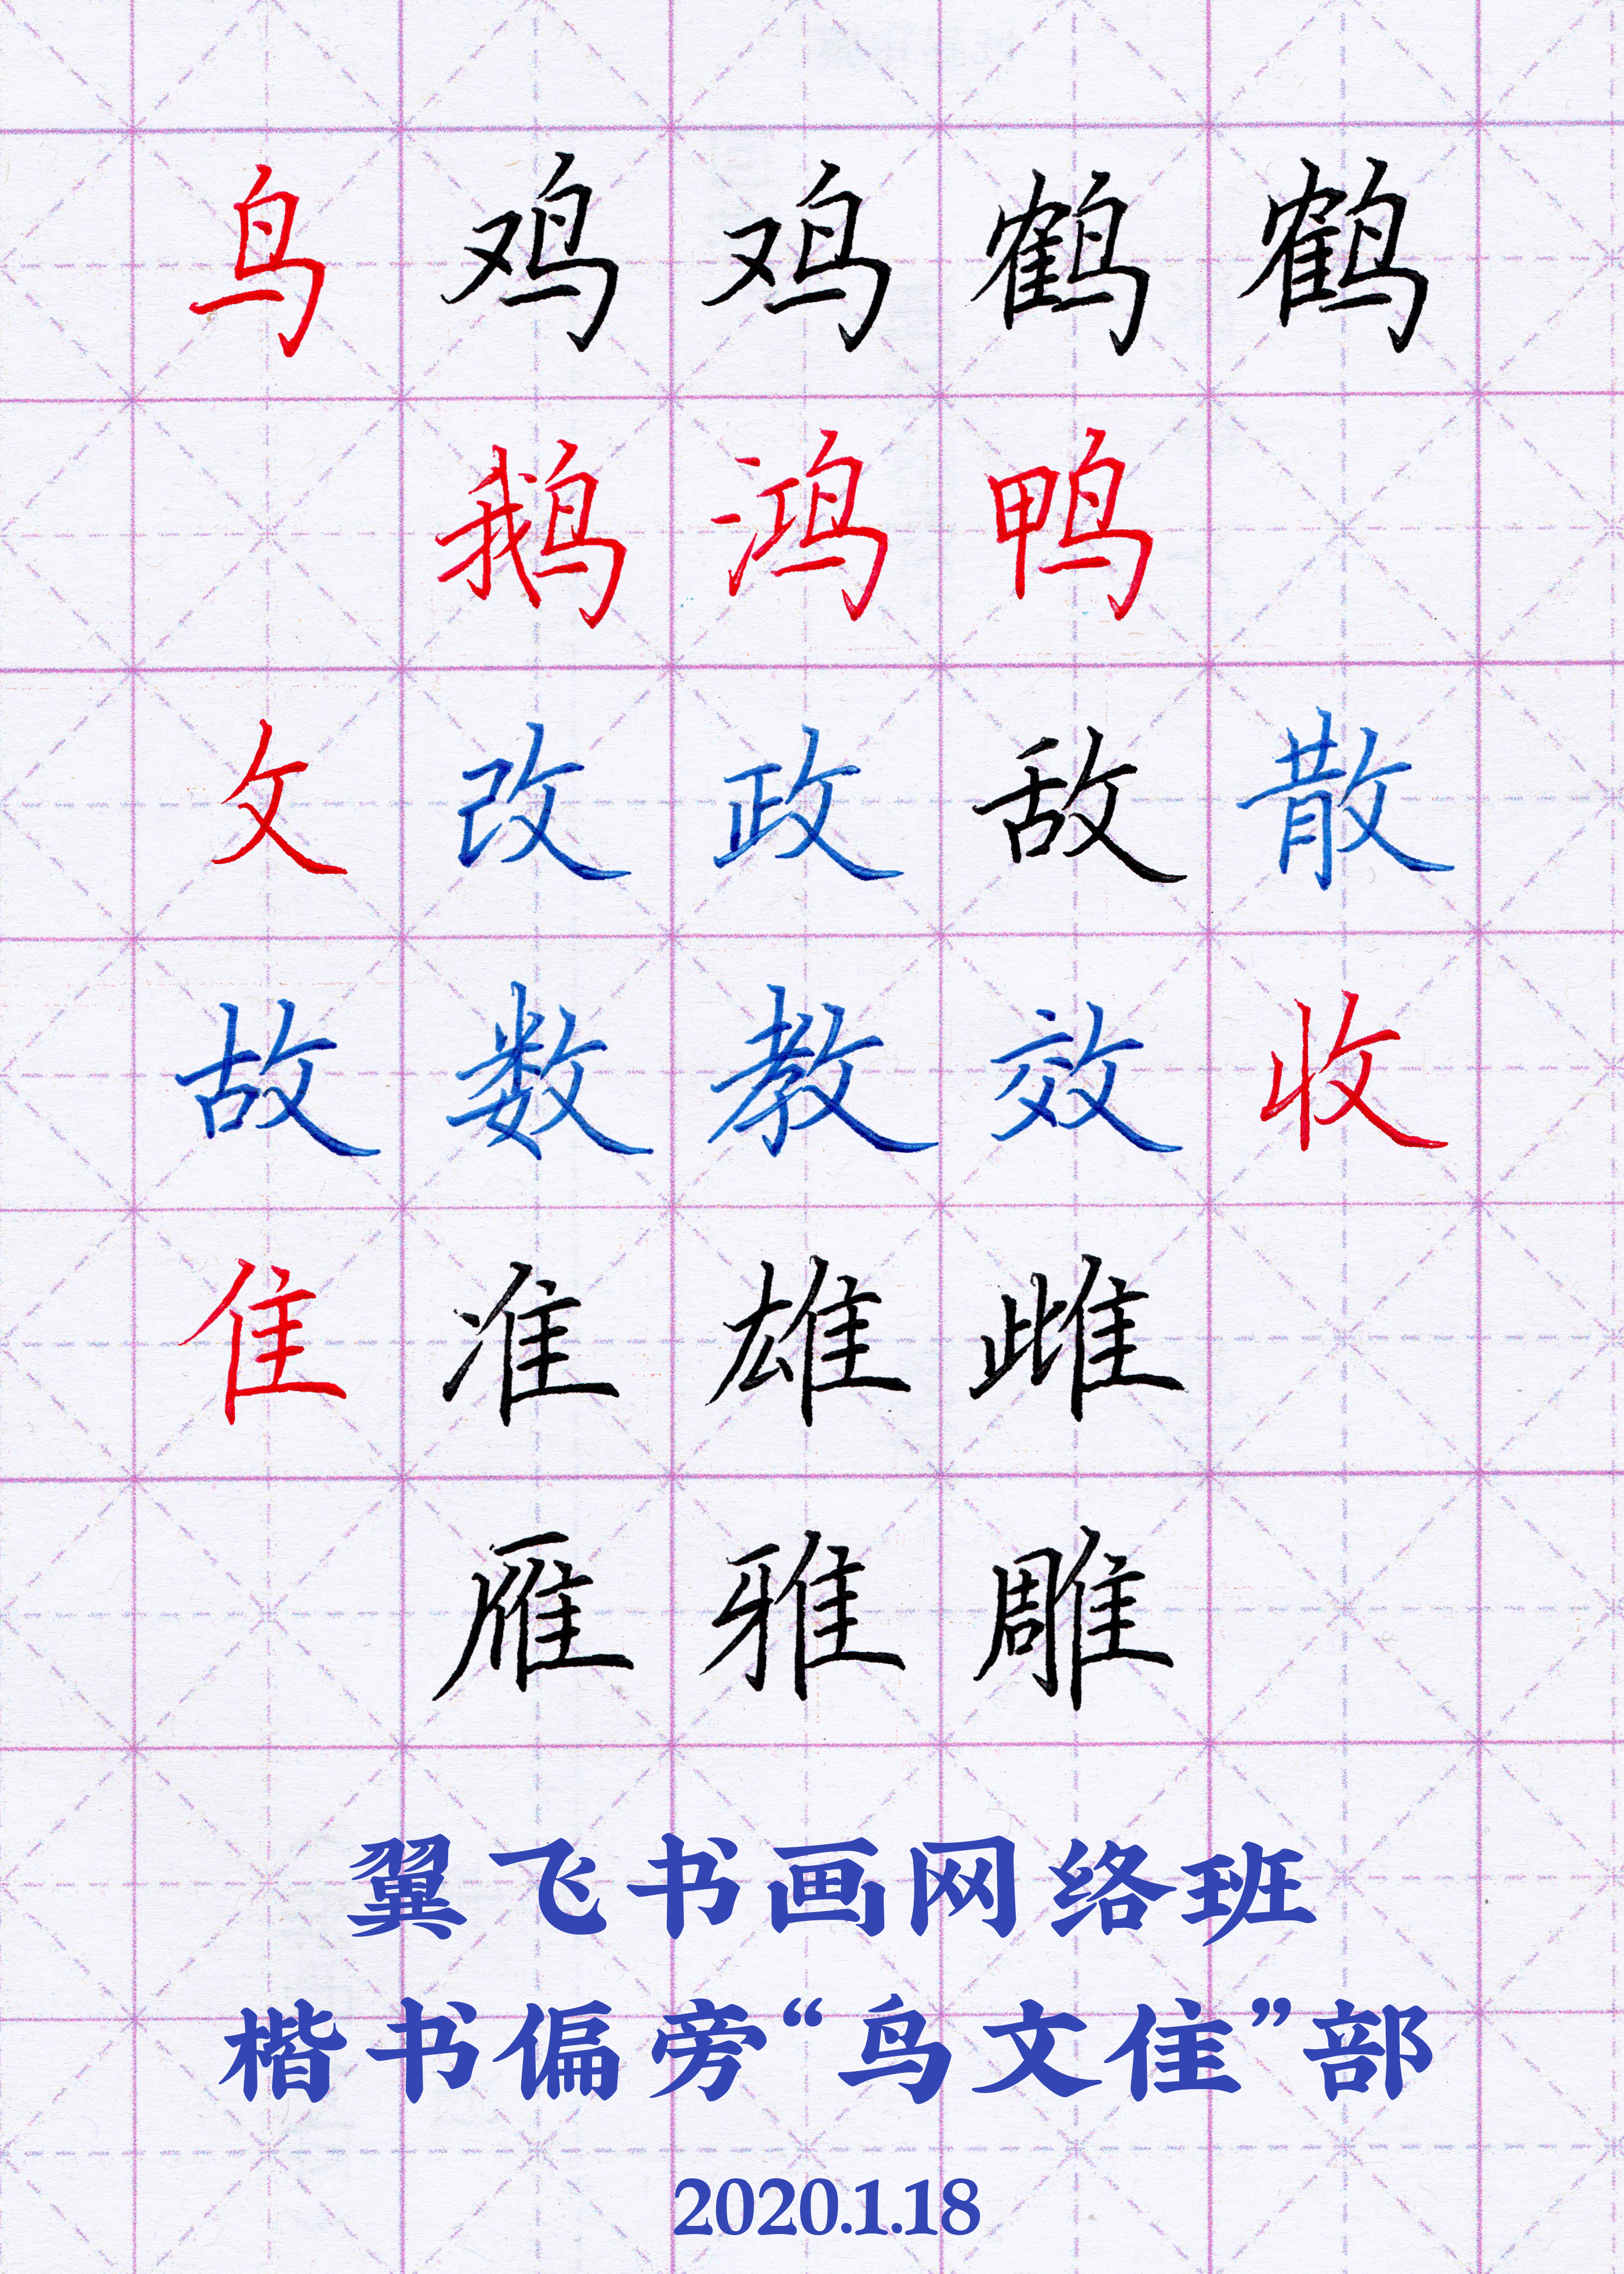 鸟鸡鸡鹤鹤
鹅鸿鸭
攵改政敌散
故数教效收
隹准雄雌
雁雅雕
翼飞书画网络班
楷书偏旁“鸟文隹”部
2020.1.18